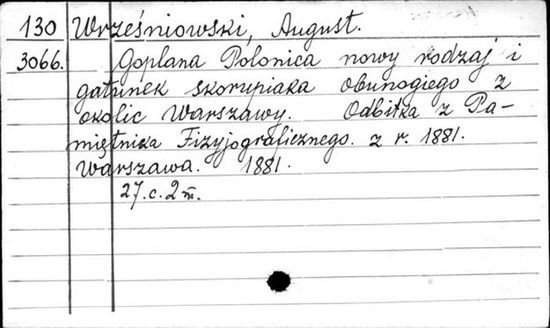 130 Wrześniowski, August.
3066. Goplana Polonica nowy rodzaj i
gatunek skorupiaka obunogiego z
okolic Warszawy. Odbitka z Pa-
miętnika Fizyjograficznego. z r. 1881.
Warszawa. 1881.
27.c.2 m.